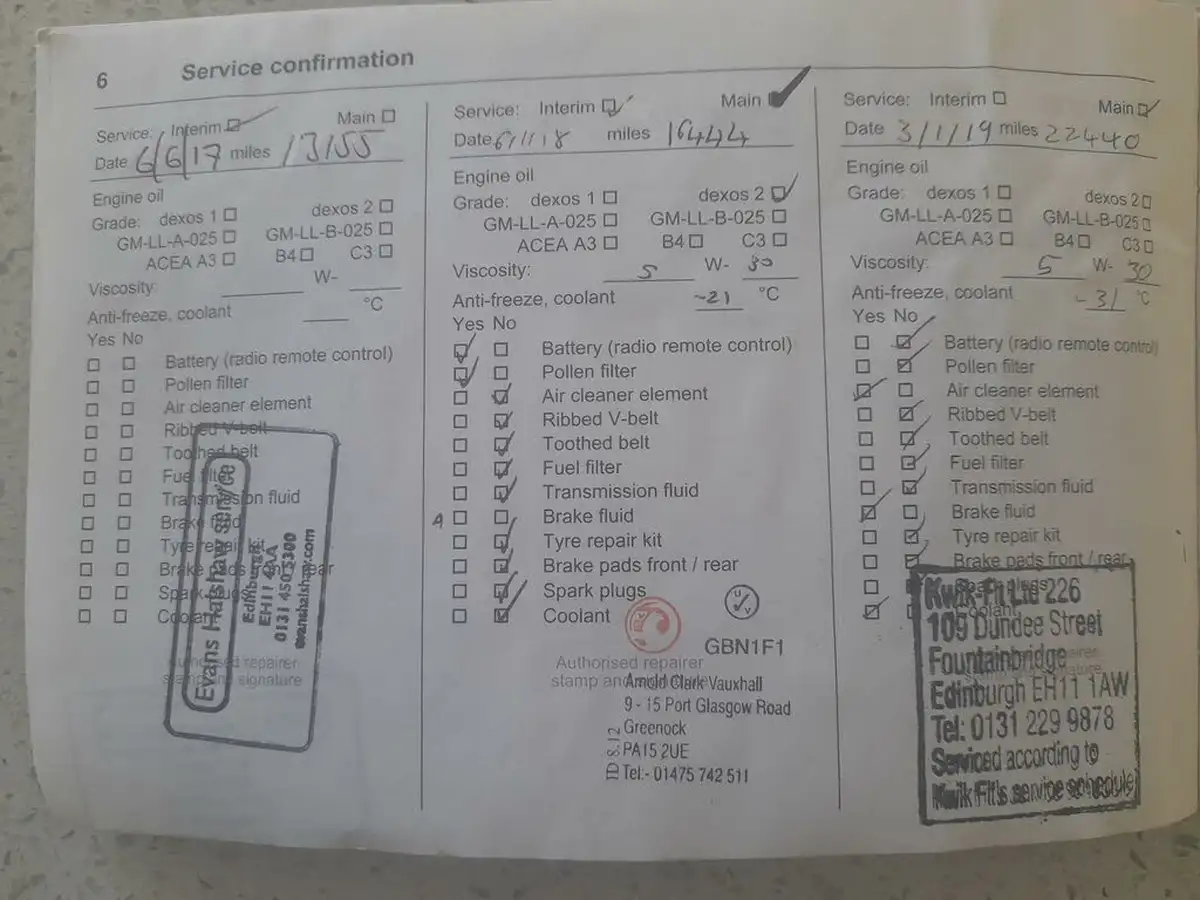 6 Service confirmation
Service: Interim Main
Date 6/6/17 miles 13155
Engine oil
Grade: dexos 1 dexos 2
GM-LL-A-025 GM-LL-B-025
ACEA A3 B4 C3
Viscosity: W-
Anti-freeze, coolant °C
Yes No
Battery (radio remote control)
Pollen filter
Air cleaner element
Ribbed V-belt
Toothed belt
Fuel filter
Transmission fluid
Brake fluid
Tyre repair kit
Brake pads front / rear
Spark plugs
Coolant
Authorised repairer
stamp and signature
Evans Halshaw Service
Edinburgh
EH11 4AA
0131 450 5300
evanshalshaw.com
Service: Interim Main
Date 6/1/18 miles 16444
Engine oil
Grade: dexos 1 dexos 2
GM-LL-A-025 GM-LL-B-025
ACEA A3 B4 C3
Viscosity: 5 W- 30
Anti-freeze, coolant -21 °C
Yes No
Battery (radio remote control)
Pollen filter
Air cleaner element
Ribbed V-belt
Toothed belt
Fuel filter
Transmission fluid
A Brake fluid
Tyre repair kit
Brake pads front / rear
Spark plugs
Coolant
GBN1F1
Authorised repairer
stamp and
Arnold Clark Vauxhall
9 - 15 Port Glasgow Road
Greenock
PA15 2UE
Tel:- 01475 742 511
Service: Interim Main
Date 3/1/19 miles 22440
Engine oil
Grade: dexos 1 dexos 2
GM-LL-A-025 GM-LL-B-025
ACEA A3 B4 C3
Viscosity: 5 W- 30
Anti-freeze, coolant -31 °C
Yes No
Battery (radio remote control)
Pollen filter
Air cleaner element
Ribbed V-belt
Toothed belt
Fuel filter
Transmission fluid
Brake fluid
Tyre repair kit
Brake pads front / rear
Spark plugs
Coolant
Kwik-Fit Ltd 226
109 Dundee Street
Fountainbridge
Edinburgh EH11 1AW
Tel: 0131 229 9878
Serviced according to
Kwik Fit's service schedule